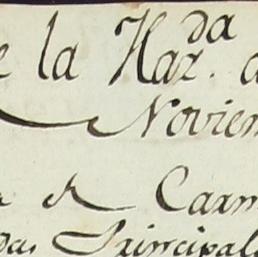 e la Haz.da d
Noviem
a de Carm
das Principal